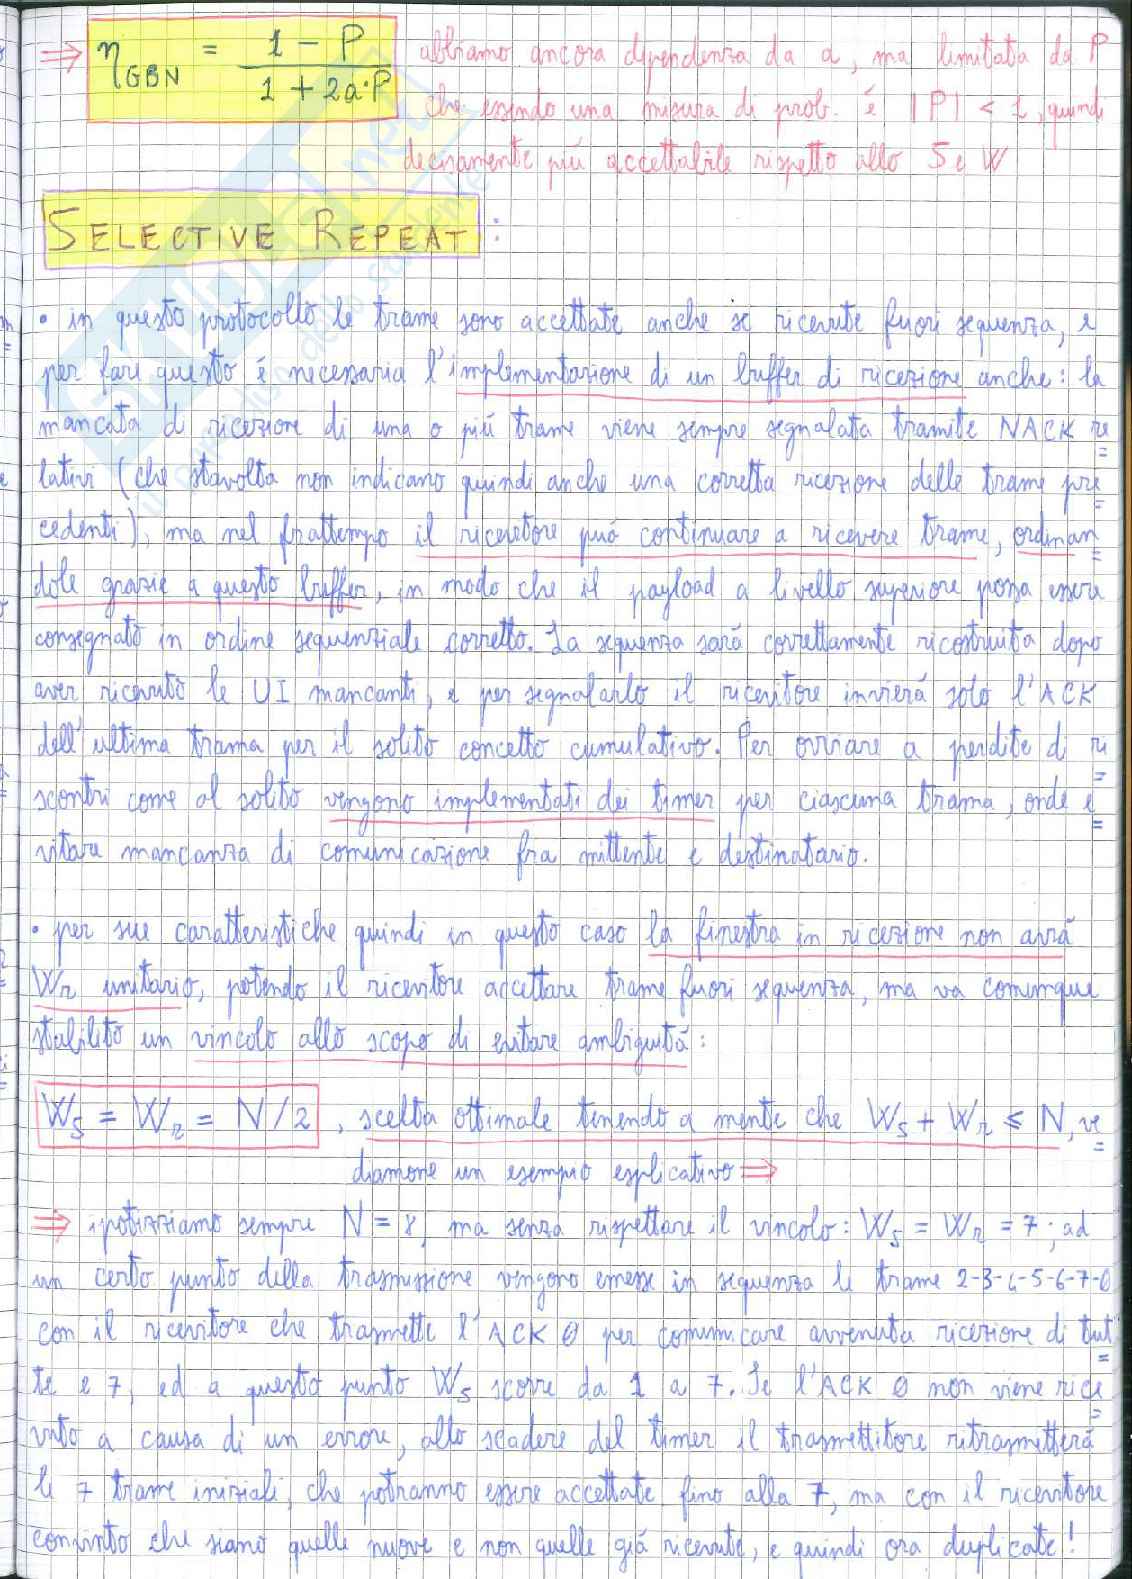 ⇒ η_GBN = (1 - P) / (1 + 2a·P) abbiamo ancora dipendenza da a, ma limitata da P
che essendo una misura di prob. é |P| < 1, quindi
decisamente piú accettabile rispetto allo S e W
SELECTIVE REPEAT:
• in questo protocollo le trame sono accettate anche se ricevute fuori sequenza, e
per fare questo é necessaria l'implementazione di un buffer di ricezione anche: la
mancata d ricezione di una o piú trame viene sempre segnalata tramite NACK re
lativi (che stavolta non indicano quindi anche una corretta ricezione delle trame pre
cedenti), ma nel frattempo il ricevitore puó continuare a ricevere trame, ordinan
dole grazie a questo buffer, in modo che il payload a livello superiore possa essere
consegnato in ordine sequenziale corretto. La sequenza sará correttamente ricostruita dopo
aver ricevuto le UI mancanti, e per segnalarlo il ricevitore invierá solo l'ACK
dell'ultima trama per il solito concetto cumulativo. Per ovviare a perdite di ri
scontri come al solito vengono implementati dei timer per ciascuna trama, onde e
vitare mancanza di comunicazione fra mittente e destinatario.
• per sue caratteristiche quindi in questo caso la finestra in ricezione non avrá
W_r unitario, potendo il ricevitore accettare trame fuori sequenza, ma va comunque
stabilito un vincolo allo scopo di evitare ambiguitá:
W_s = W_r = N/2, scelta ottimale tenendo a mente che W_s + W_r ≤ N, ve
diamone un esempio esplicativo ⇒
⇒ ipotizziamo sempre N = 8, ma senza rispettare il vincolo: W_s = W_r = 7; ad
un certo punto della trasmissione vengono emesse in sequenza le trame 2-3-4-5-6-7-0
con il ricevitore che trasmette l'ACK 0 per comunicare avvenuta ricezione di tut
te e 7, ed a questo punto W_s scorre da 1 a 7. Se l'ACK 0 non viene rice
vuto a causa di un errore, allo scadere del timer il trasmettitore ritrasmetterá
le 7 trame iniziali, che potranno essere accettate fino alla 7, ma con il ricevitore
convinto che siano quelle nuove e non quelle giá ricevute, e quindi ora duplicate!